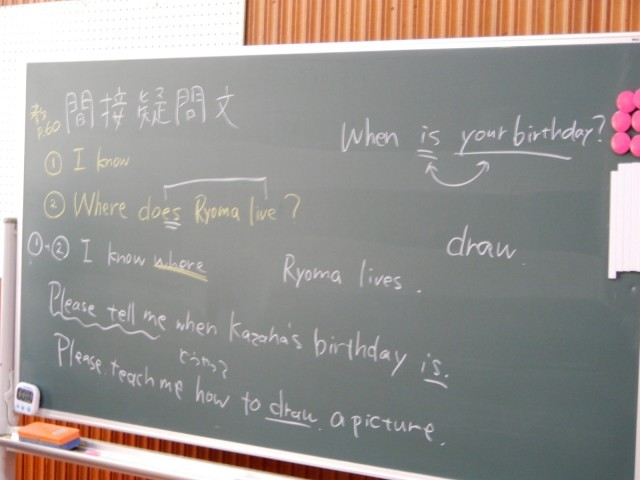 間接疑問文
P.60
① I know
② Where does Ryoma live?
①+② I know where Ryoma lives.
When is your birthday?
draw
Please tell me when Kazaha's birthday is.
どうやって
Please teach me how to draw a picture.